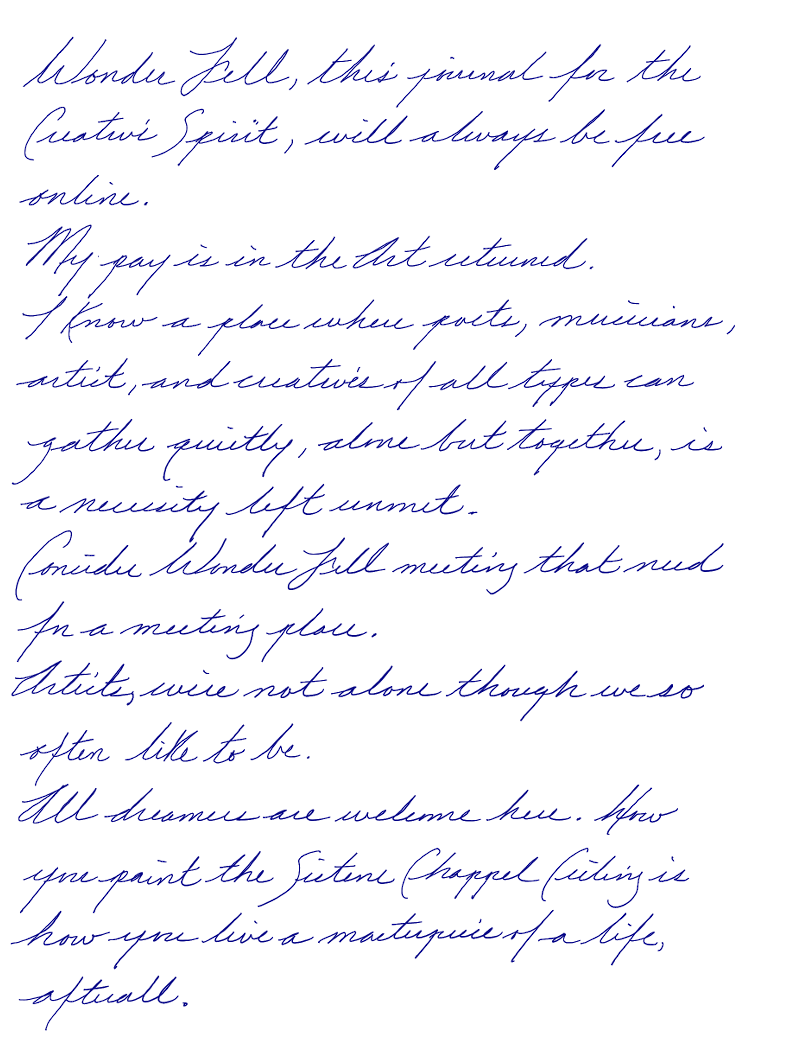 Wonder Fell, this journal for the
Creative Spirit, will always be free
online.
My pay is in the Art returned.
I know a place where poets, musicians,
artist, and creatives of all types can
gather quietly, alone but together, is
a necessity left unmet.
Consider Wonder Fell meeting that need
for a meeting place.
Artists, we're not alone though we so
often like to be.
All dreamers are welcome here. How
you paint the Sistene Chappel Ceiling is
how you live a masterpiece of a life,
afterall.